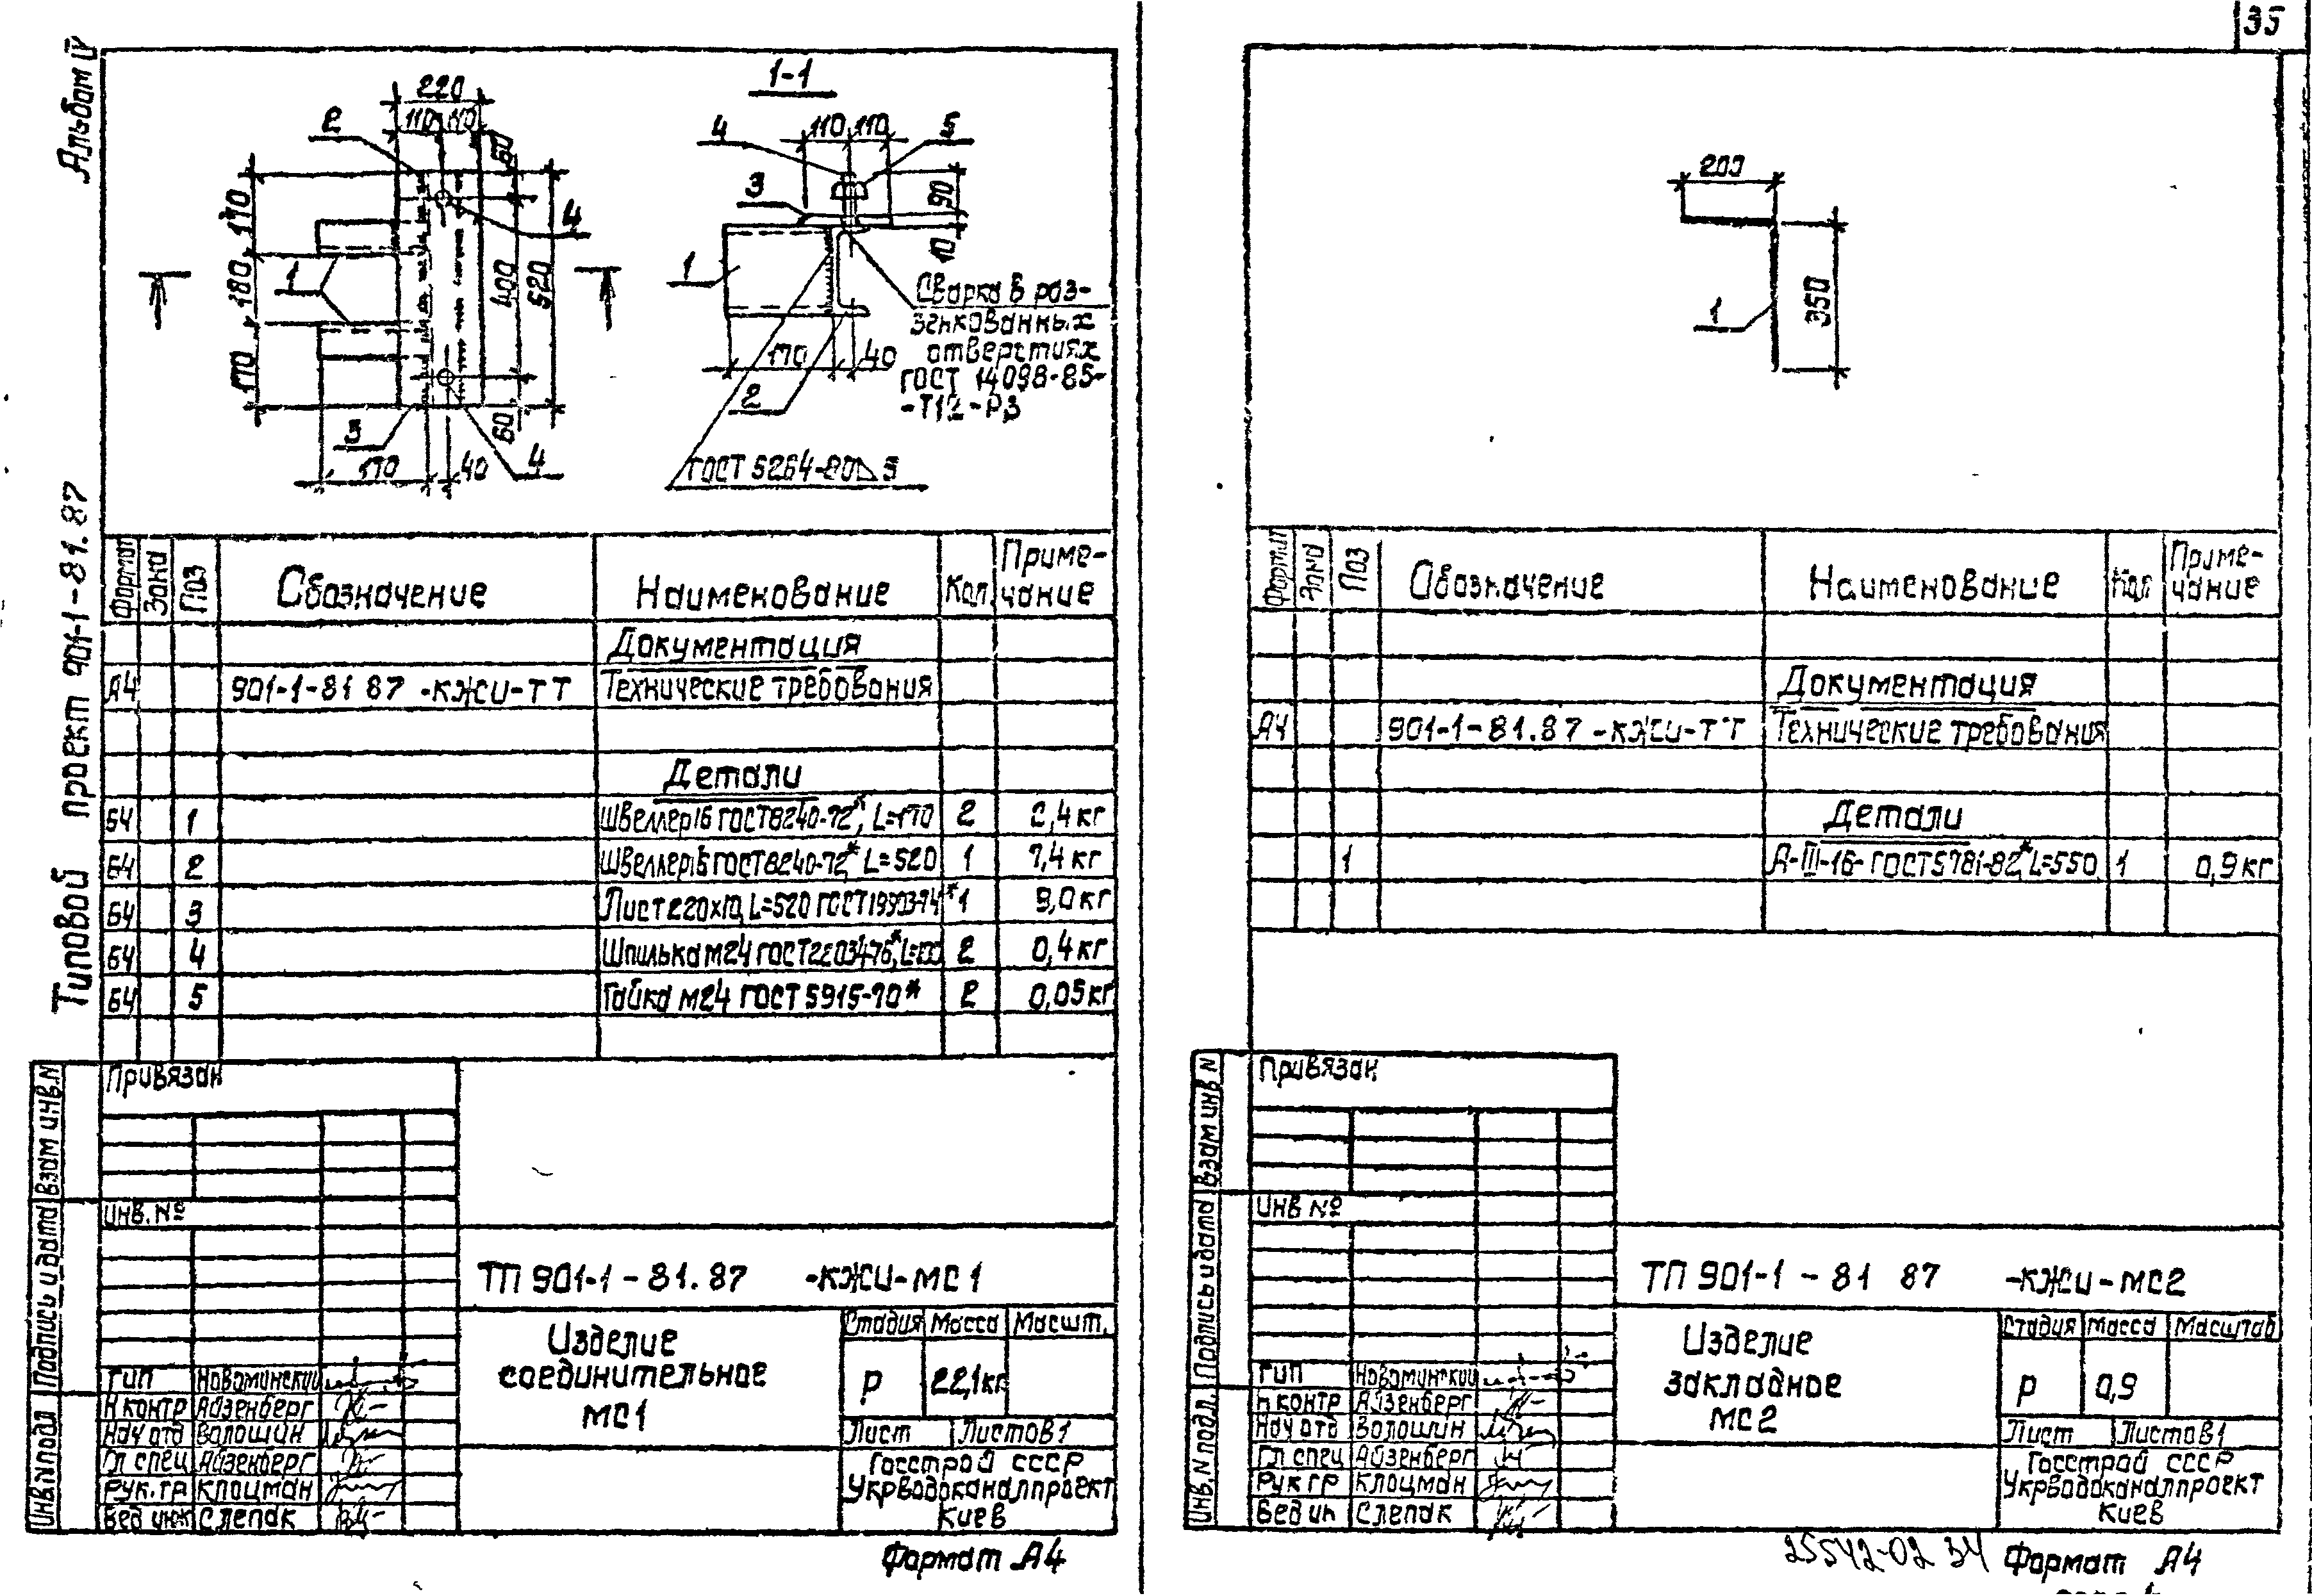 35
Альбом IV
Типовой проект 901-1-81.87
220
110 110
2
60
170
180
170
1
4
400
520
3
60
170
40
4
1-1
110 110
4
5
3
90
10
1
Сварка в раз-
зенкованных
отверстиях
ГОСТ 14098-85-
-Т12-Рз
170
40
2
ГОСТ 5264-80 5
Формат Зона Поз Обозначение Наименование Кол. Приме-
чание
Документация
А4 901-1-81 87 -КЖИ-ТТ Технические требования
Детали
Б4 1 Швеллер16 ГОСТ8240-72*, L=170 2 2,4 кг
Б4 2 Швеллер16 ГОСТ8240-72*, L=520 1 7,4 кг
Б4 3 Лист220х10, L=520 ГОСТ19903-74* 1 9,0 кг
Б4 4 Шпилька М24 ГОСТ22034-76*, 2 0,4 кг
Б4 5 Гайка М24 ГОСТ 5915-70* 2 0,05 кг
Привязан
Инв. №
Взам инв. N
Подпись и дата
Инв. N подл
ТП 901-1-81.87 -КЖИ-МС1
Изделие
соединительное
МС1
Стадия Масса Масшт.
Р 22,1кг
Лист Листов 1
Госстрой СССР
Укрводоканалпроект
Киев
ГИП Новоминский
Н контр Айзенберг
Нач отд Волошин
Гл спец Айзенберг
Рук. гр Клоцман
Вед инж Слепак
Формат А4
200
350
1
Формат Зона Поз Обозначение Наименование Кол Приме-
чание
Документация
А4 901-1-81.87 -КЖИ-ТТ Технические требования
Детали
1 А-III-16-ГОСТ5781-82*, L=550 1 0,9 кг
Привязан
Инв №
Взам инв N
Подпись и дата
Инв. N подл.
ТП 901-1-81 87 -КЖИ-МС2
Изделие
закладное
МС2
Стадия Масса Масштаб
Р 0,9
Лист Листов 1
Госстрой СССР
Укрводоканалпроект
Киев
ГИП Новоминский
Н контр Айзенберг
Нач отд Волошин
Гл спец Айзенберг
Рук гр Клоцман
Вед ин Слепак
25542-02 34 Формат А4